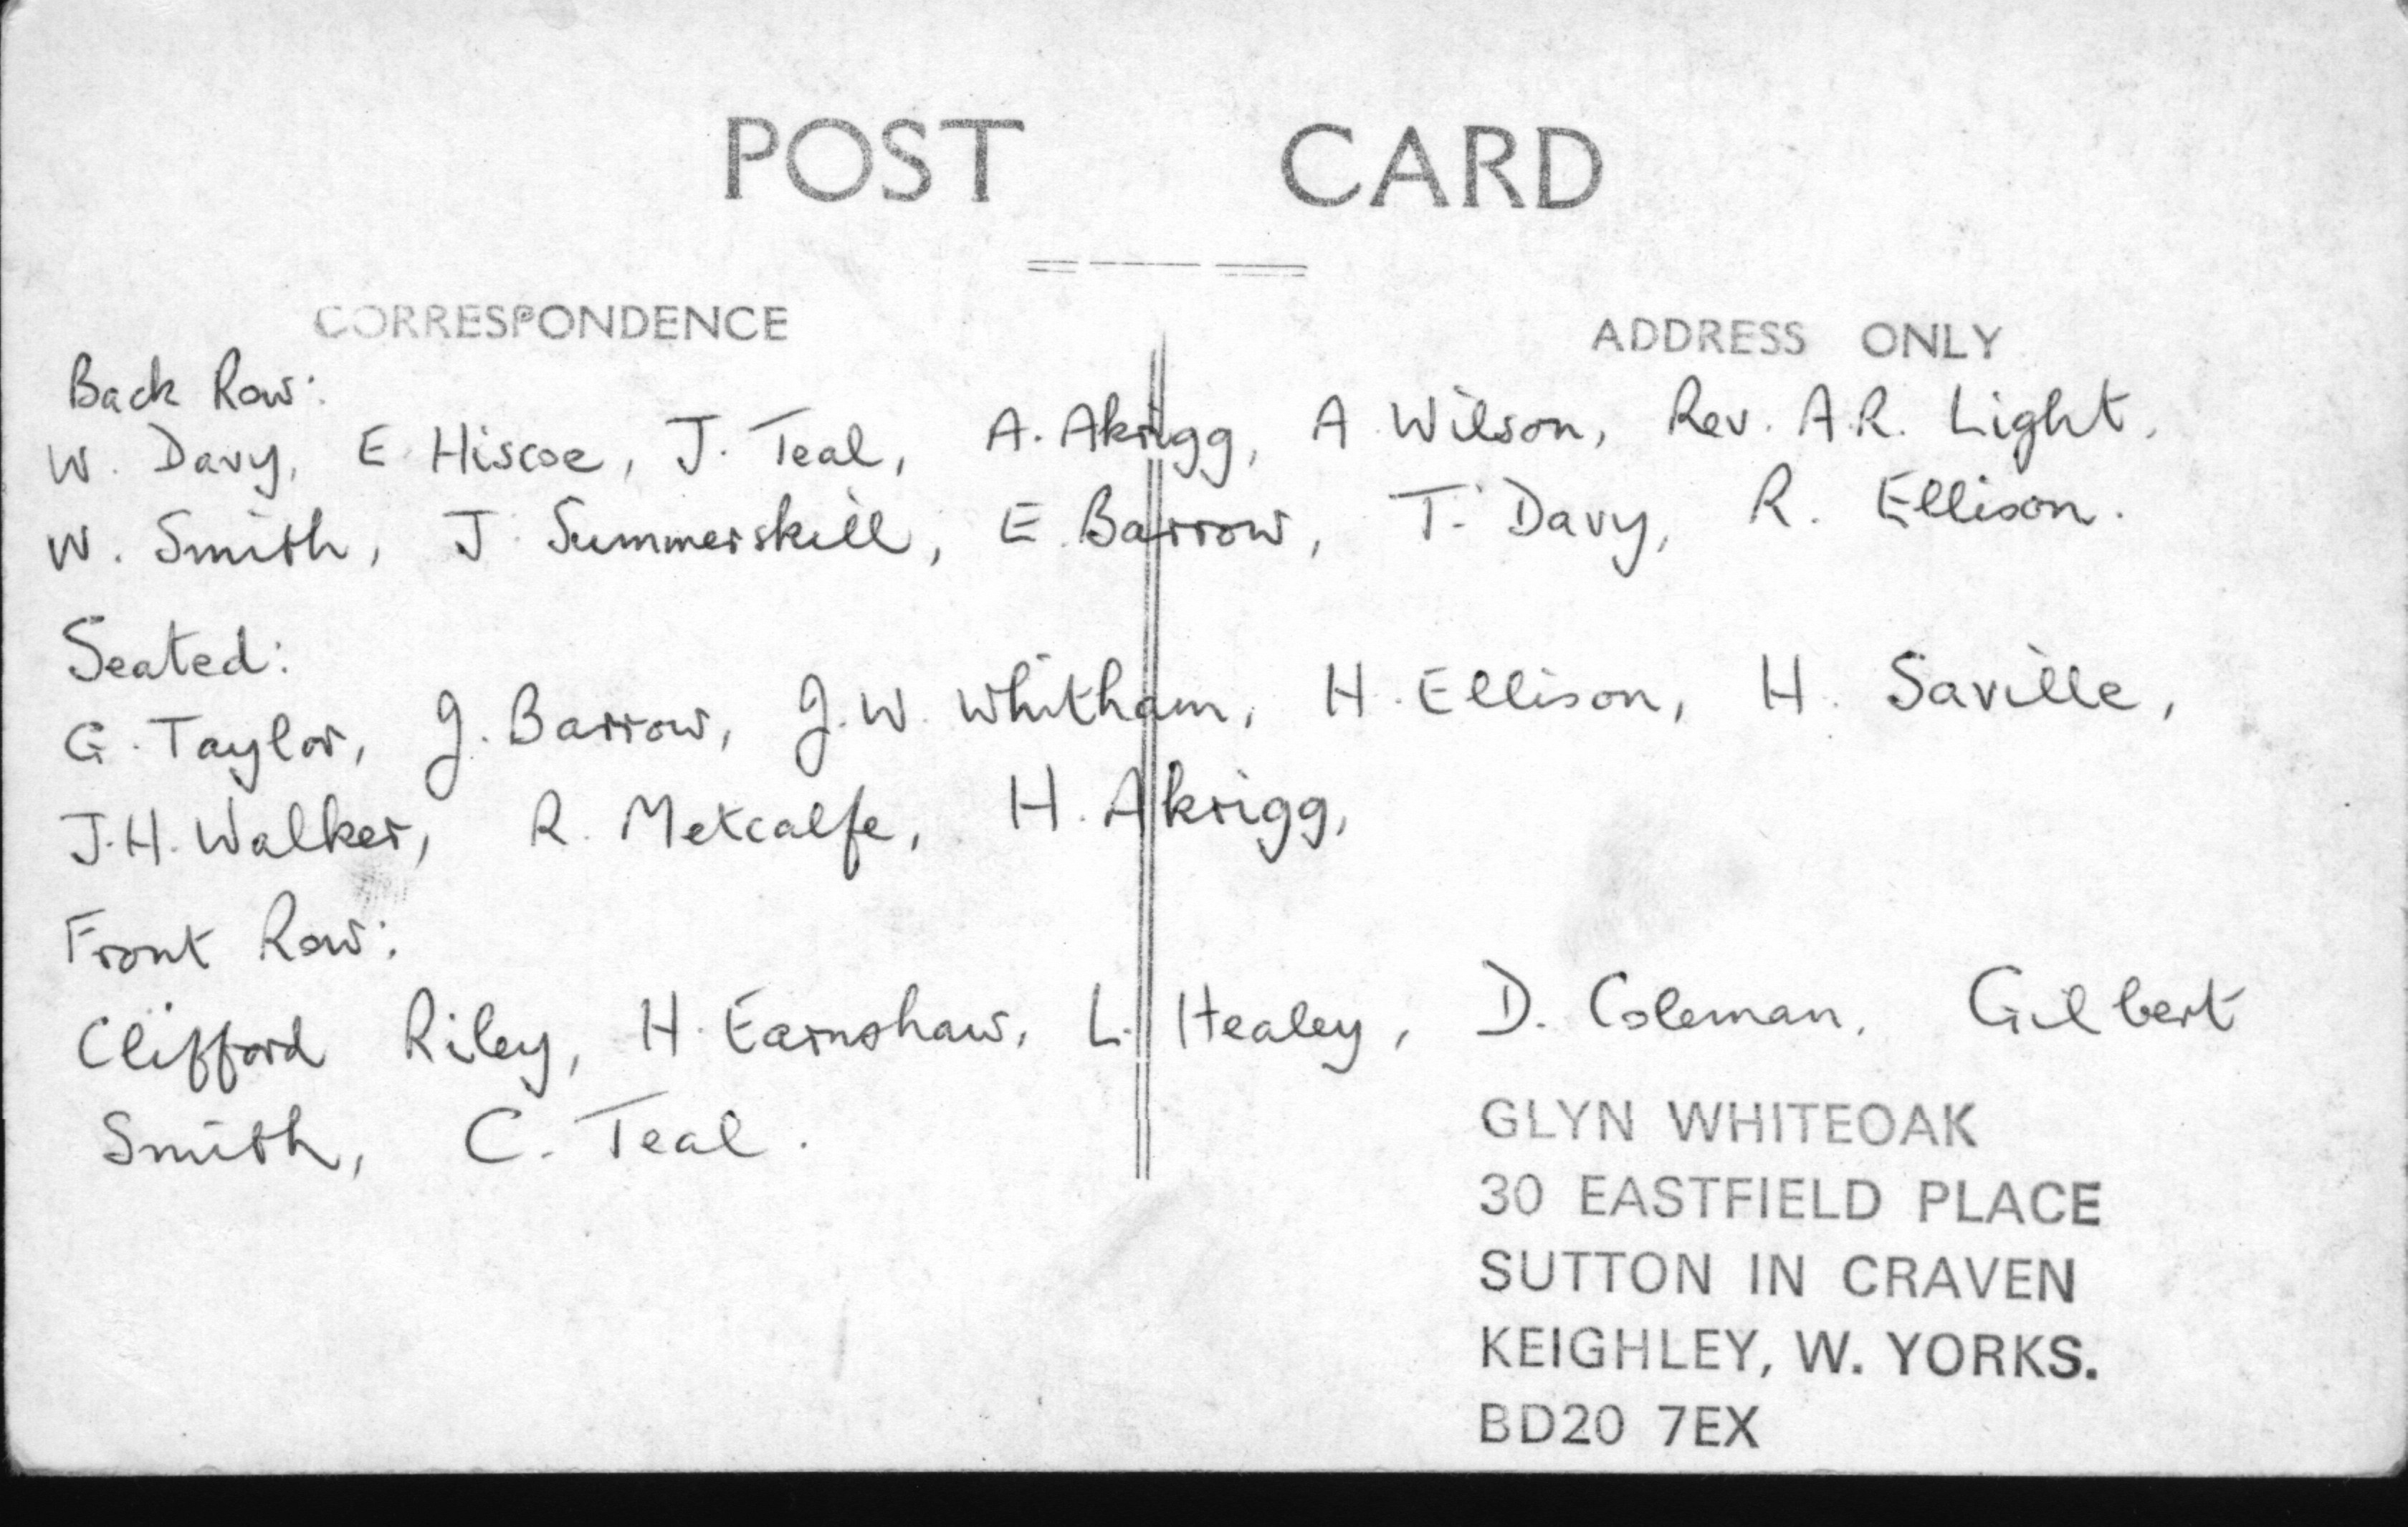 POST CARD
CORRESPONDENCE
ADDRESS ONLY
Back Row:
W. Davy, E. Hiscoe, J. Teal, A. Akrigg, A. Wilson, Rev. A.R. Light,
W. Smith, J. Summerskill, E. Barrow, T. Davy, R. Ellison.
Seated:
G. Taylor, J. Barrow, J.W. Whitham, H. Ellison, H. Saville,
J.H. Walker, R. Metcalfe, H. Akrigg,
Front Row:
Clifford Riley, H. Earnshaw, L. Healey, D. Coleman, Gilbert
Smith, C. Teal.
GLYN WHITEOAK
30 EASTFIELD PLACE
SUTTON IN CRAVEN
KEIGHLEY, W. YORKS.
BD20 7EX